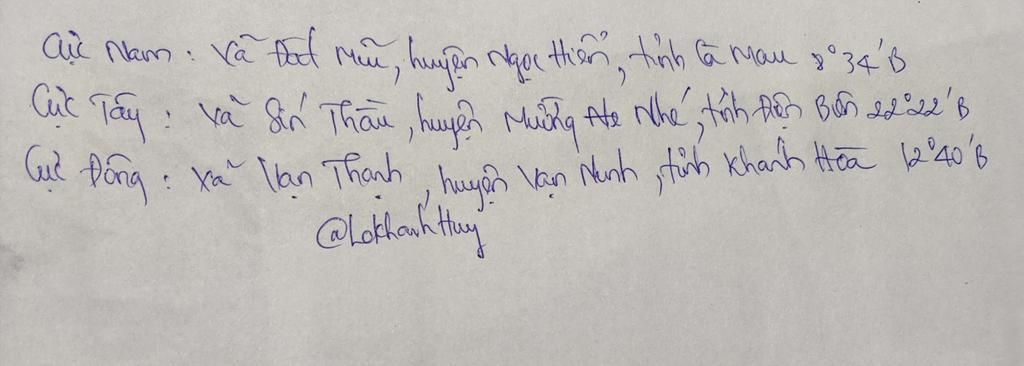 Cực Nam : Xã Đất Mũi, huyện Ngọc Hiển, tỉnh Cà Mau 8°34'B
Cực Tây : xã Sín Thầu, huyện Mường He Nhé, tỉnh Điện Biên 22°22'B
Cực Đông : xã Vạn Thạnh, huyện Vạn Ninh, tỉnh Khánh Hòa 12°40'B
@LokhanhHuy